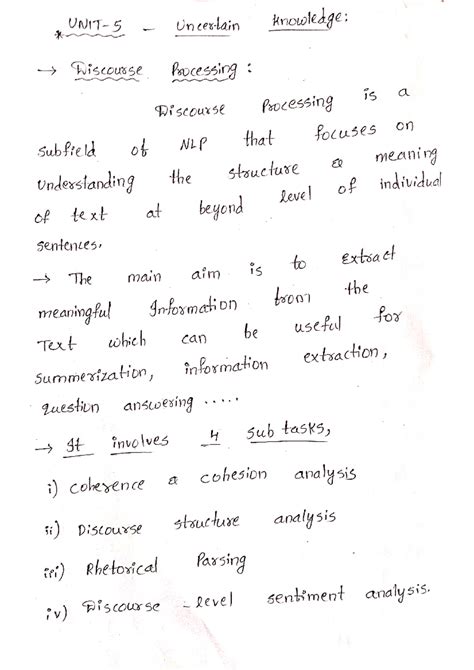 * UNIT-5 - Uncertain Knowledge:
→ Discourse Processing:
Discourse Processing is a
subfield of NLP that focuses on
Understanding the structure & meaning
of text at beyond level of individual
sentences.
→ The main aim is to Extract
meaningful Information from the
Text which can be useful for
Summerization, information extraction,
question answering .....
→ It involves 4 sub tasks,
i) coherence & cohesion analysis
ii) Discourse structure analysis
iii) Rhetorical Parsing
iv) Discourse - level sentiment analysis.